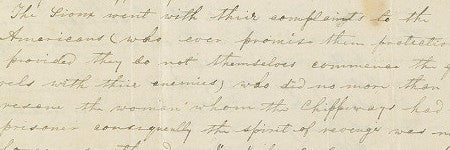 The Sioux went with their complaints to the
Americans (who ever promise them protectio
provided they do not themselves commence the q
rels with their enemies) who did no more than
rescue the woman whom the Chippeways had
prisoner consequently the spirit of revenge was n